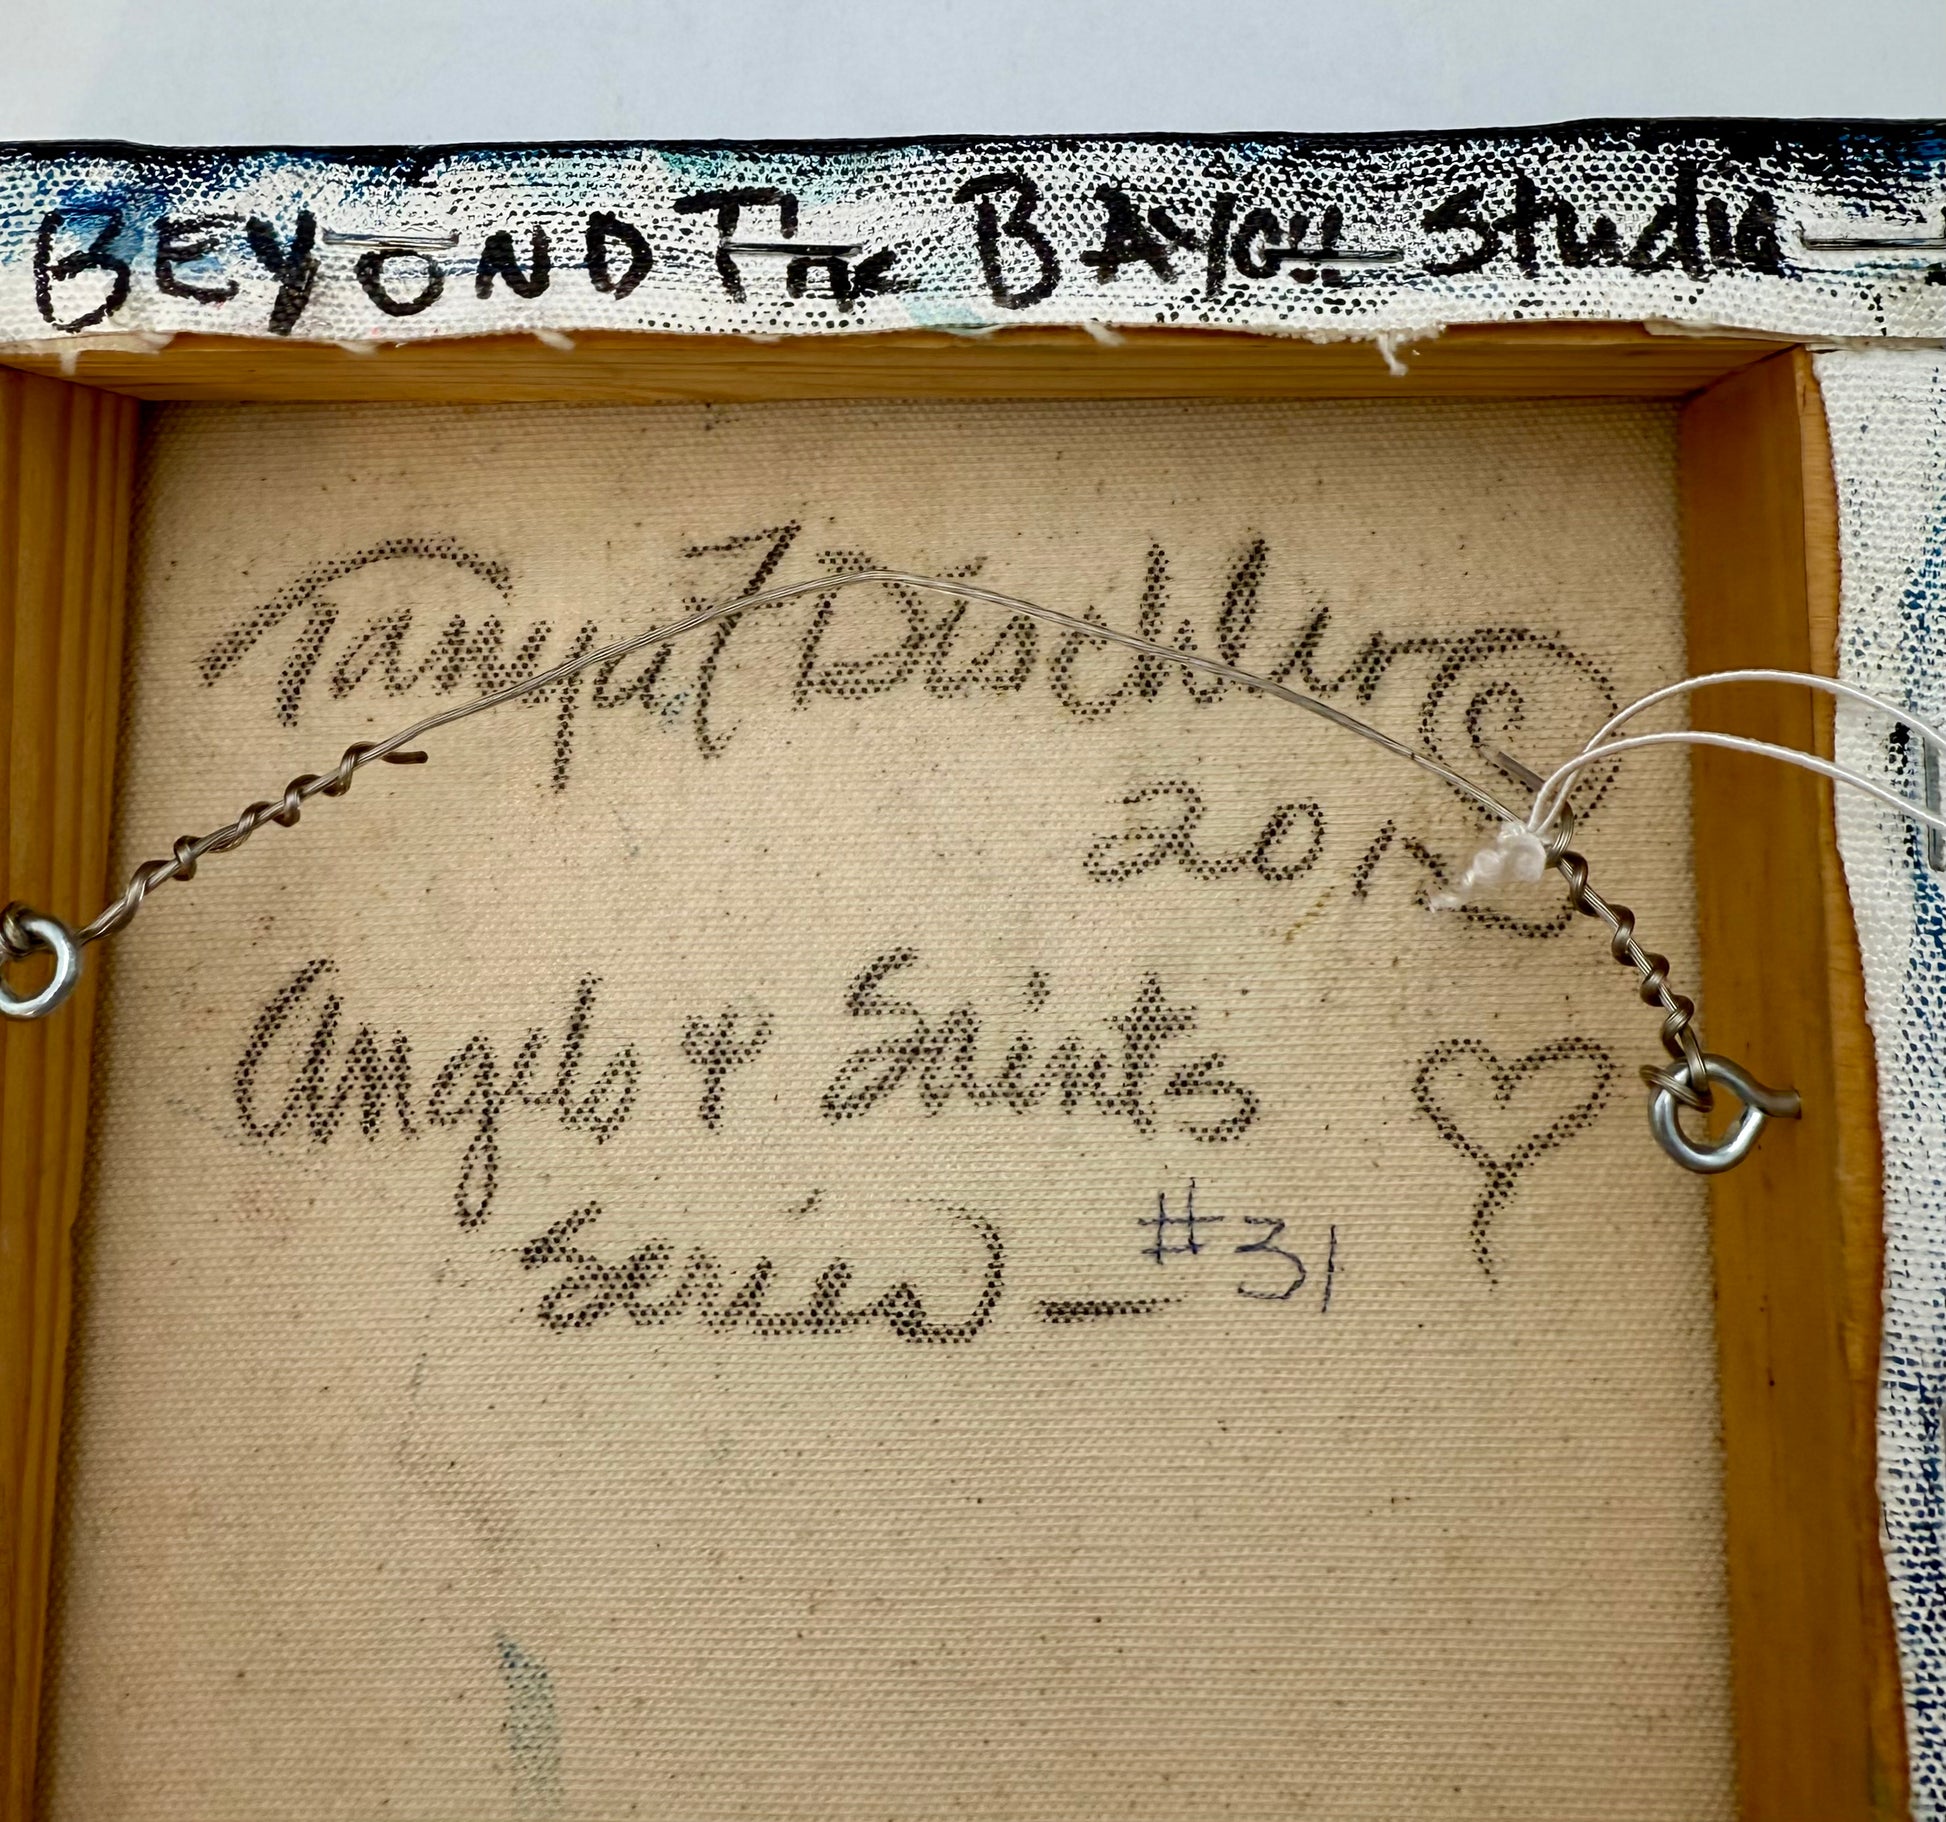 BEYOND The BAYOU Studio
Tanya J Dischler
2012
Angels + Saints
Series — #31